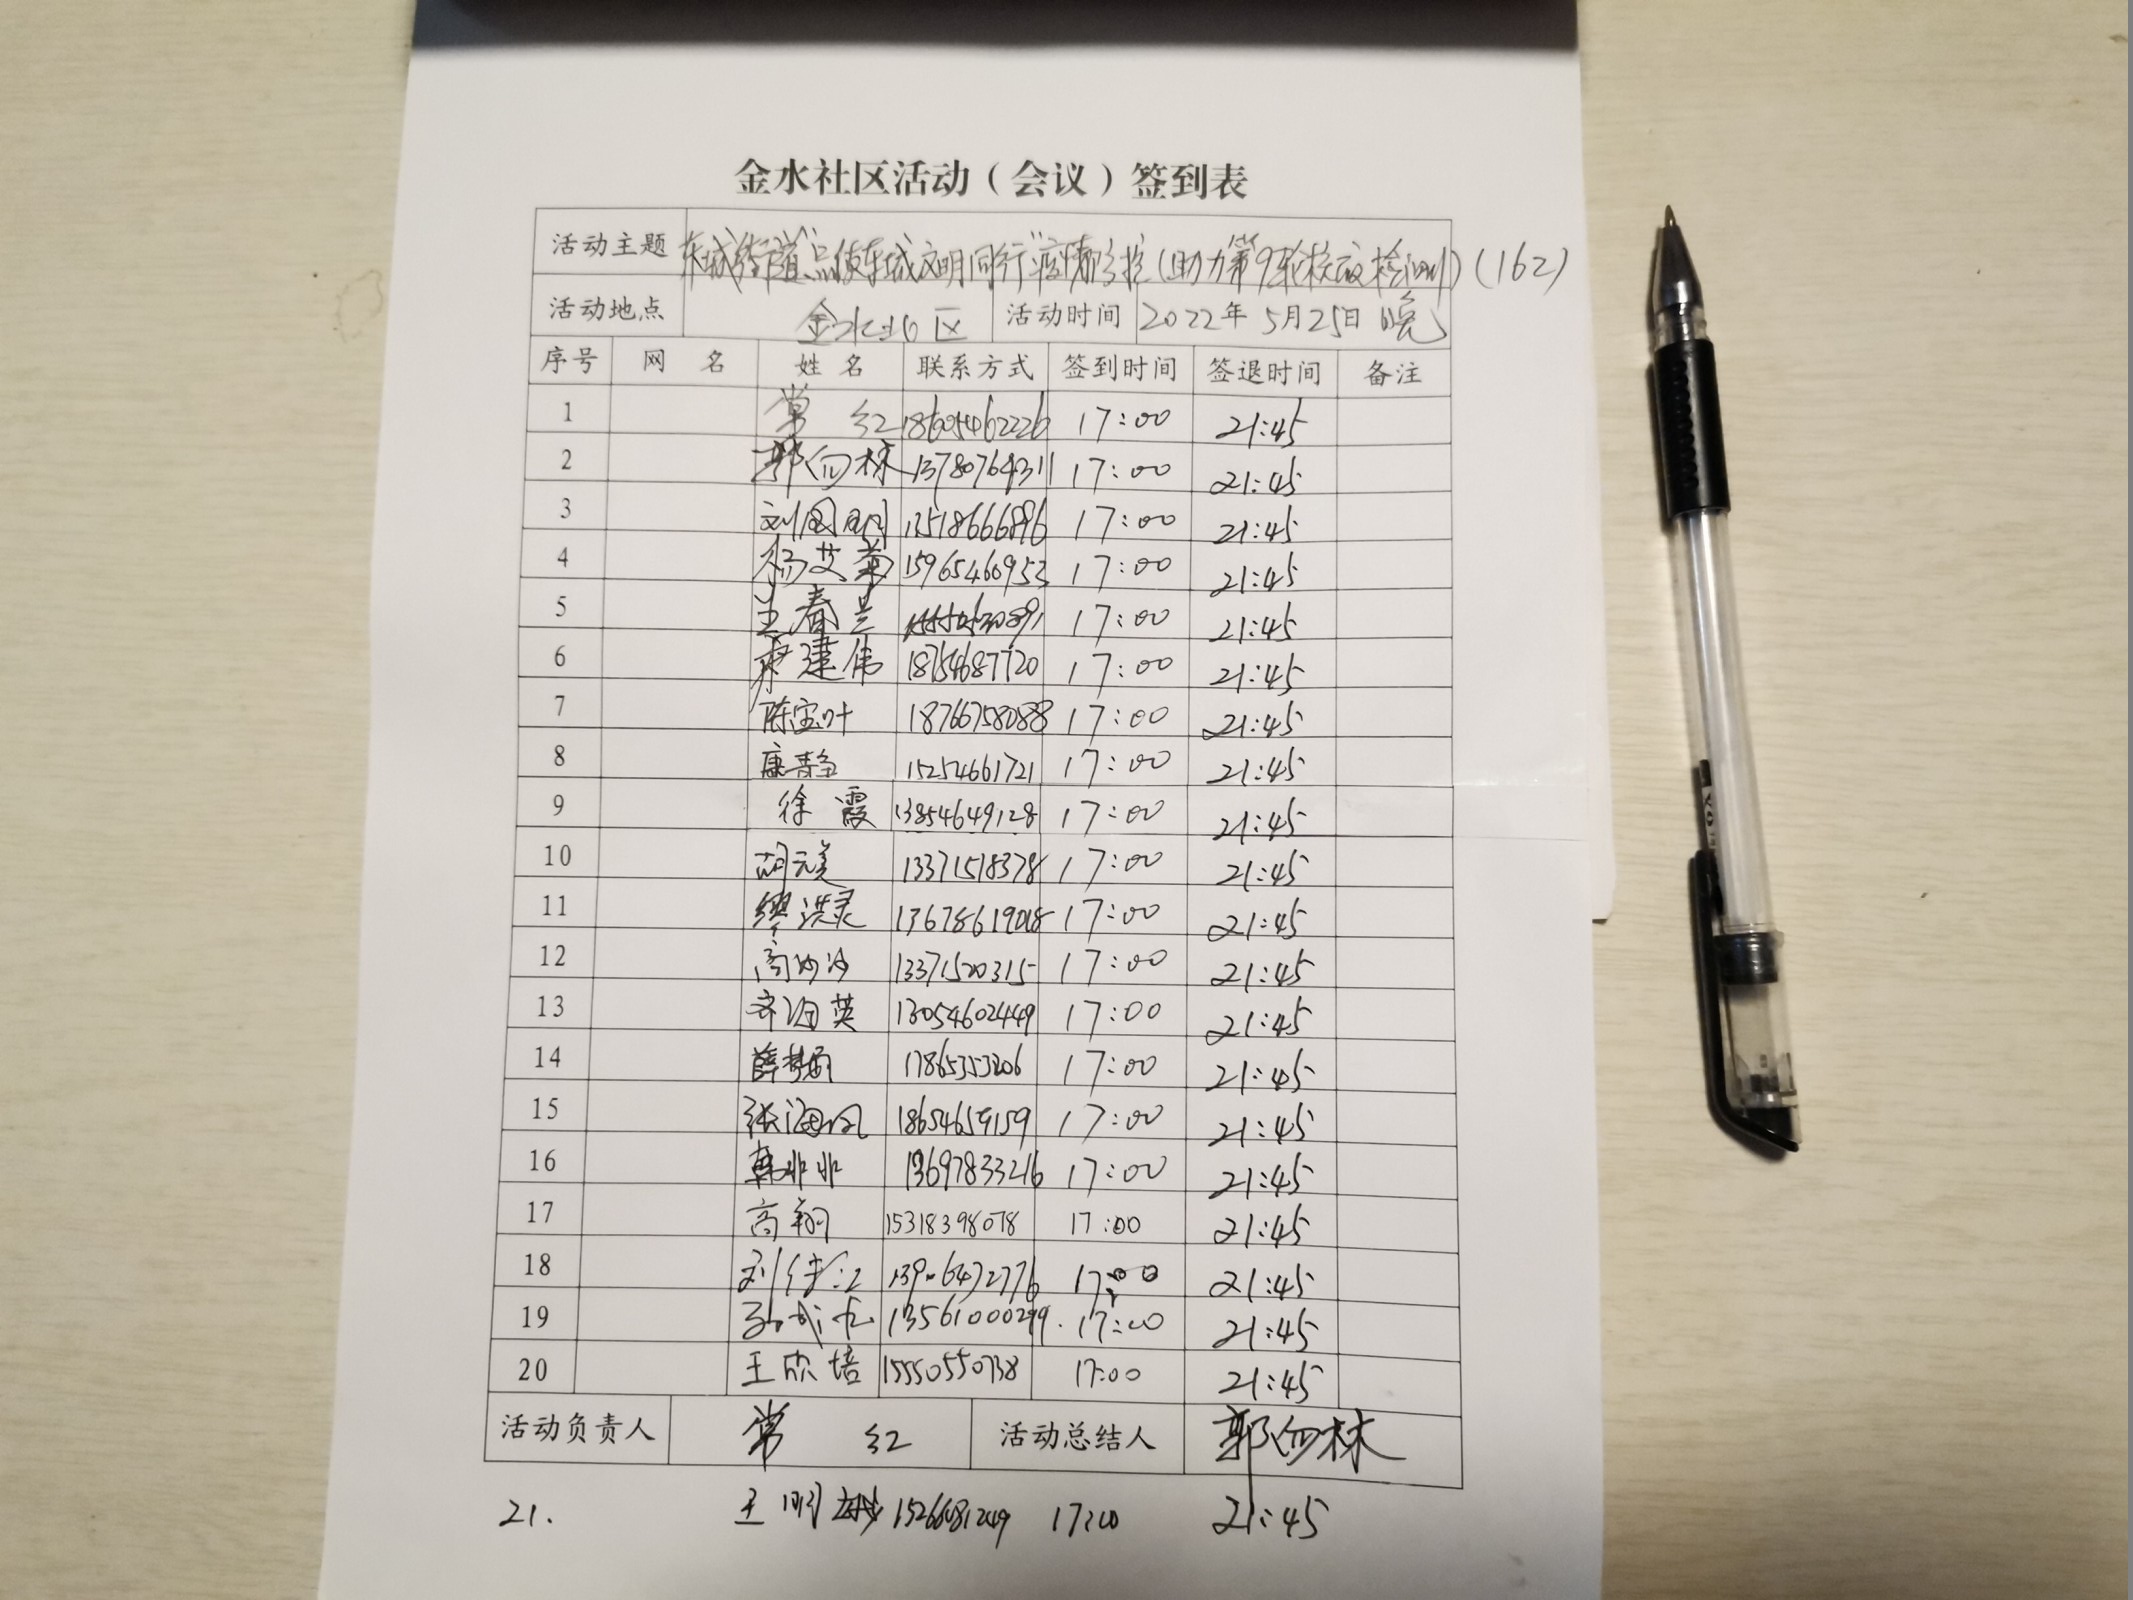 金水社区活动（会议）签到表
活动主题 东城街道"点使东城文明同行"疫情防控（助力第9轮核酸检测）（162）
活动地点 金水北区 活动时间 2022年5月25日 晚
序号 网 名 姓 名 联系方式 签到时间 签退时间 备注
1 常 红 18605462226 17:00 21:45
2 郭向林 13780764311 17:00 21:45
3 刘国明 13518666896 17:00 21:45
4 杨艾菊 15965460953 17:00 21:45
5 王春兰 17:00 21:45
6 建伟 18754687720 17:00 21:45
7 陈宝叶 18766758088 17:00 21:45
8 康静 15254661721 17:00 21:45
9 徐 霞 13854649128 17:00 21:45
10 胡元美 13371518378 17:00 21:45
11 缪洪灵 13678619018 17:00 21:45
12 高沙沙 13371520315 17:00 21:45
13 齐海英 13054602449 17:00 21:45
14 17865353206 17:00 21:45
15 张海风 18654659159 17:00 21:45
16 韩非非 13697833216 17:00 21:45
17 高翔 15318398078 17:00 21:45
18 17:00 21:45
19 13561000299 17:00 21:45
20 王欣培 15550550738 17:00 21:45
活动负责人 常 红 活动总结人 郭向林
21. 王明 17:00 21:45